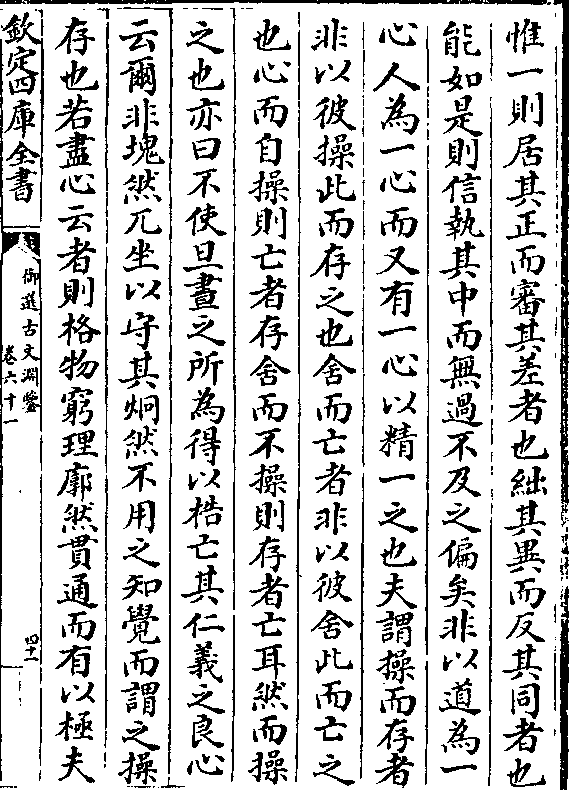 惟一則居其正而審其差者也絀其異而反其同者也
能如是則信執其中而無過不及之偏矣非以道為一
心人為一心而又有一心以精一之也夫謂操而存者
非以彼操此而存之也舍而亡者非以彼舍此而亡之
也心而自操則亡者存舍而不操則存者亡耳然而操
之也亦曰不使旦晝之所為得以梏亡其仁義之良心
云爾非塊然兀坐以守其烱然不用之知覺而謂之操
存也若盡心云者則格物窮理廓然貫通而有以極夫
欽定四庫全書
御選古文淵鑒
卷六十一
四十一